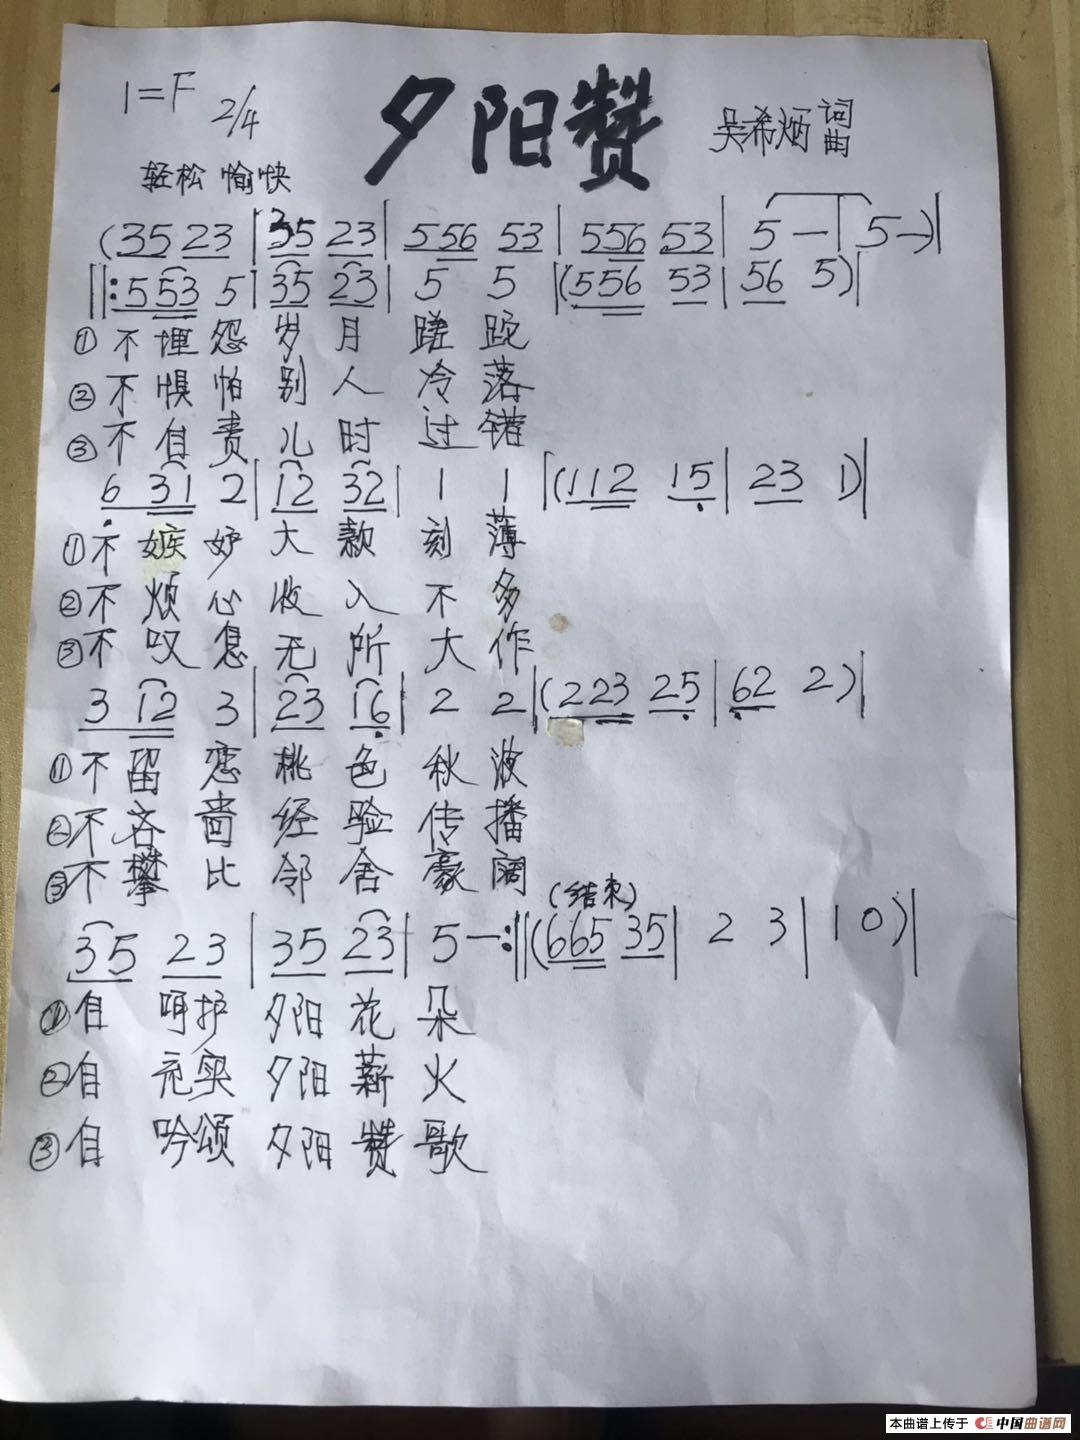 1=F 2/4
夕阳赞
吴希炳 词曲
轻松 愉快
(35 23 | 35 23 | 556 53 | 556 53 | 5 — | 5 —)|
||: 553 5 | 35 23 | 5 5 |(556 53 | 56 5)|
① 不埋怨岁月蹉跎
② 不惧怕别人冷落
③ 不自责儿时过错
6 31 2 | 12 32 | 1 1 |(112 15 | 23 1)|
① 不嫉妒大款刻薄
② 不烦心收入不多
③ 不叹息无所大作
3 12 3 | 23 16 | 2 2 |(223 25 | 62 2)|
① 不留恋桃色秋波
② 不吝啬经验传播
③ 不攀比邻舍豪阔
(结束)
35 23 | 35 23 | 5 — :||(665 35 | 2 3 | 1 0)|
① 自呵护夕阳花朵
② 自充实夕阳薪火
③ 自吟颂夕阳赞歌
本曲谱上传于 中国曲谱网